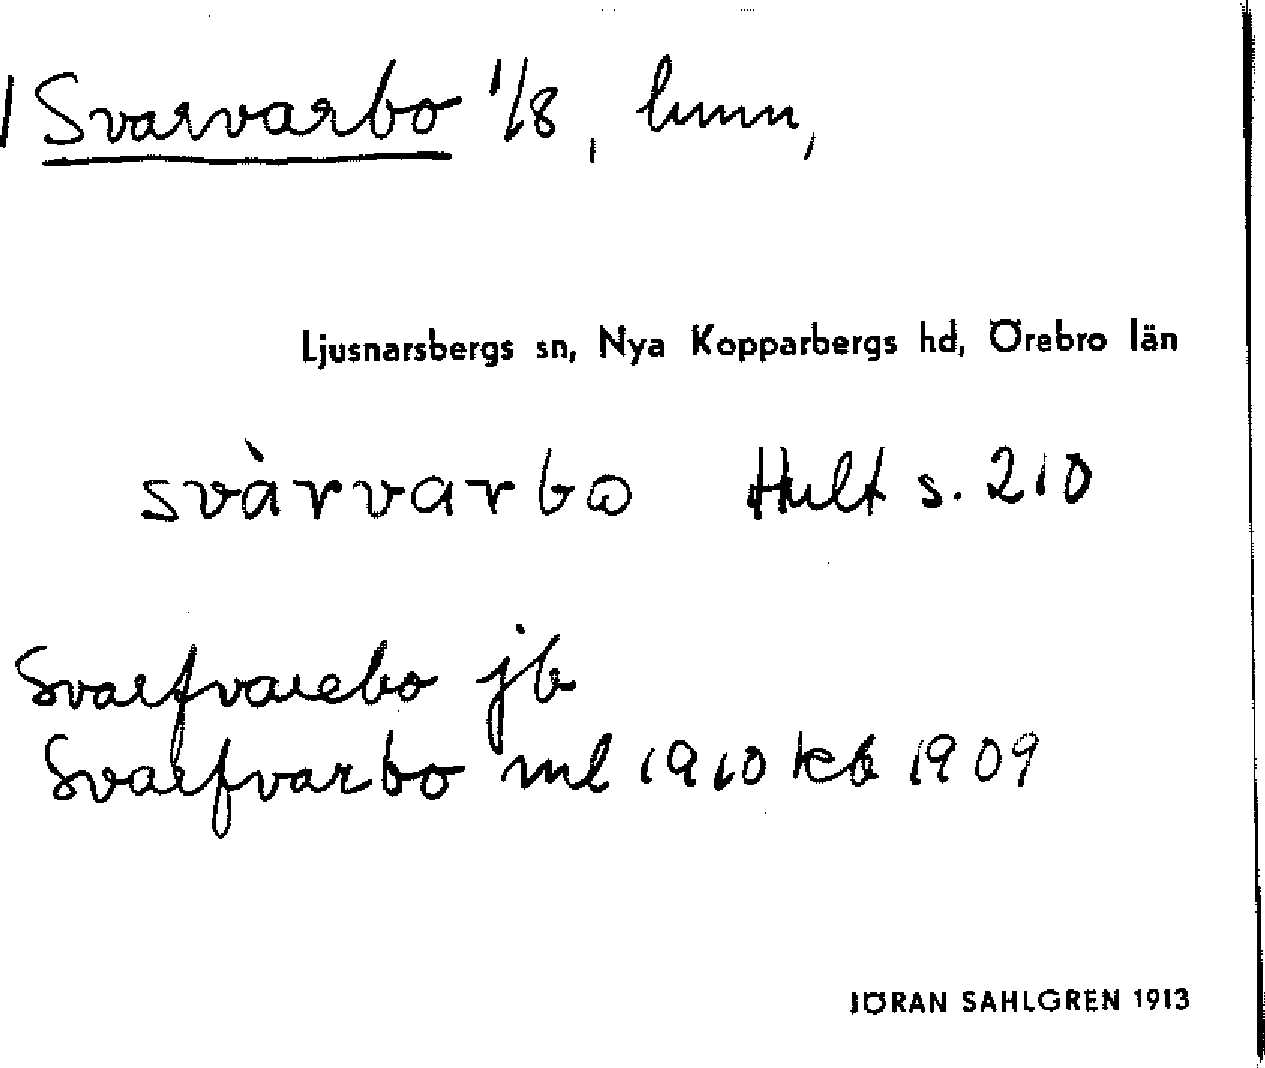 Svarvarbo 1/8, hmn,
Ljusnarsbergs sn, Nya Kopparbergs hd, Örebro län
svàrvarbo Hult s. 210
Svarfvarebo jb
Svarfvarbo ml 1910 kb 1909
JÖRAN SAHLGREN 1913